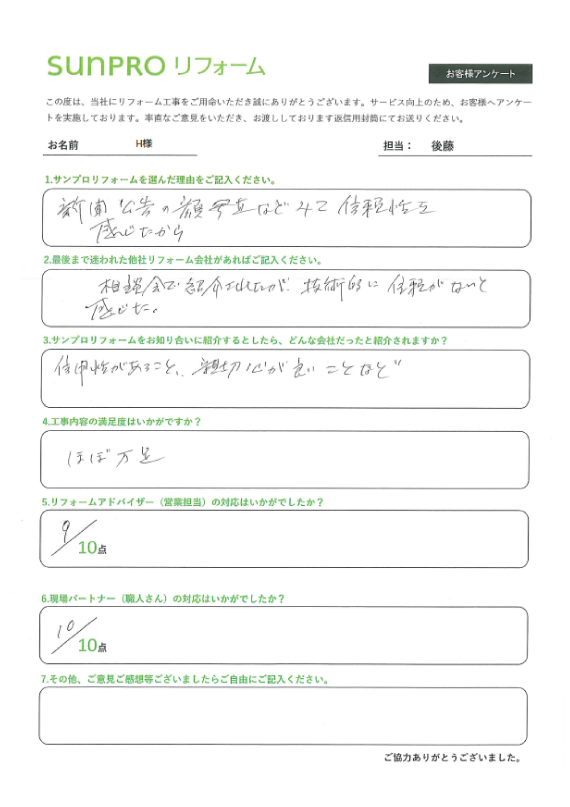 sunpro リフォーム
お客様アンケート
この度は、当社にリフォーム工事をご用命いただき誠にありがとうございます。サービス向上のため、お客様へアンケー
トを実施しております。率直なご意見をいただき、お渡ししております返信用封筒にてお送りください。
お名前 H様 担当： 後藤
1.サンプロリフォームを選んだ理由をご記入ください。
新聞広告の顔写真などみて信頼性を
感じたから
2.最後まで迷われた他社リフォーム会社があればご記入ください。
相談会で紹介されたが、技術的に信頼がないと
感じた。
3.サンプロリフォームをお知り合いに紹介するとしたら、どんな会社だったと紹介されますか？
信用性があること、親切心が良いことなど
4.工事内容の満足度はいかがですか？
ほぼ万足
5.リフォームアドバイザー（営業担当）の対応はいかがでしたか？
9/10点
6.現場パートナー（職人さん）の対応はいかがでしたか？
10/10点
7.その他、ご意見ご感想等ございましたらご自由にご記入ください。
ご協力ありがとうございました。